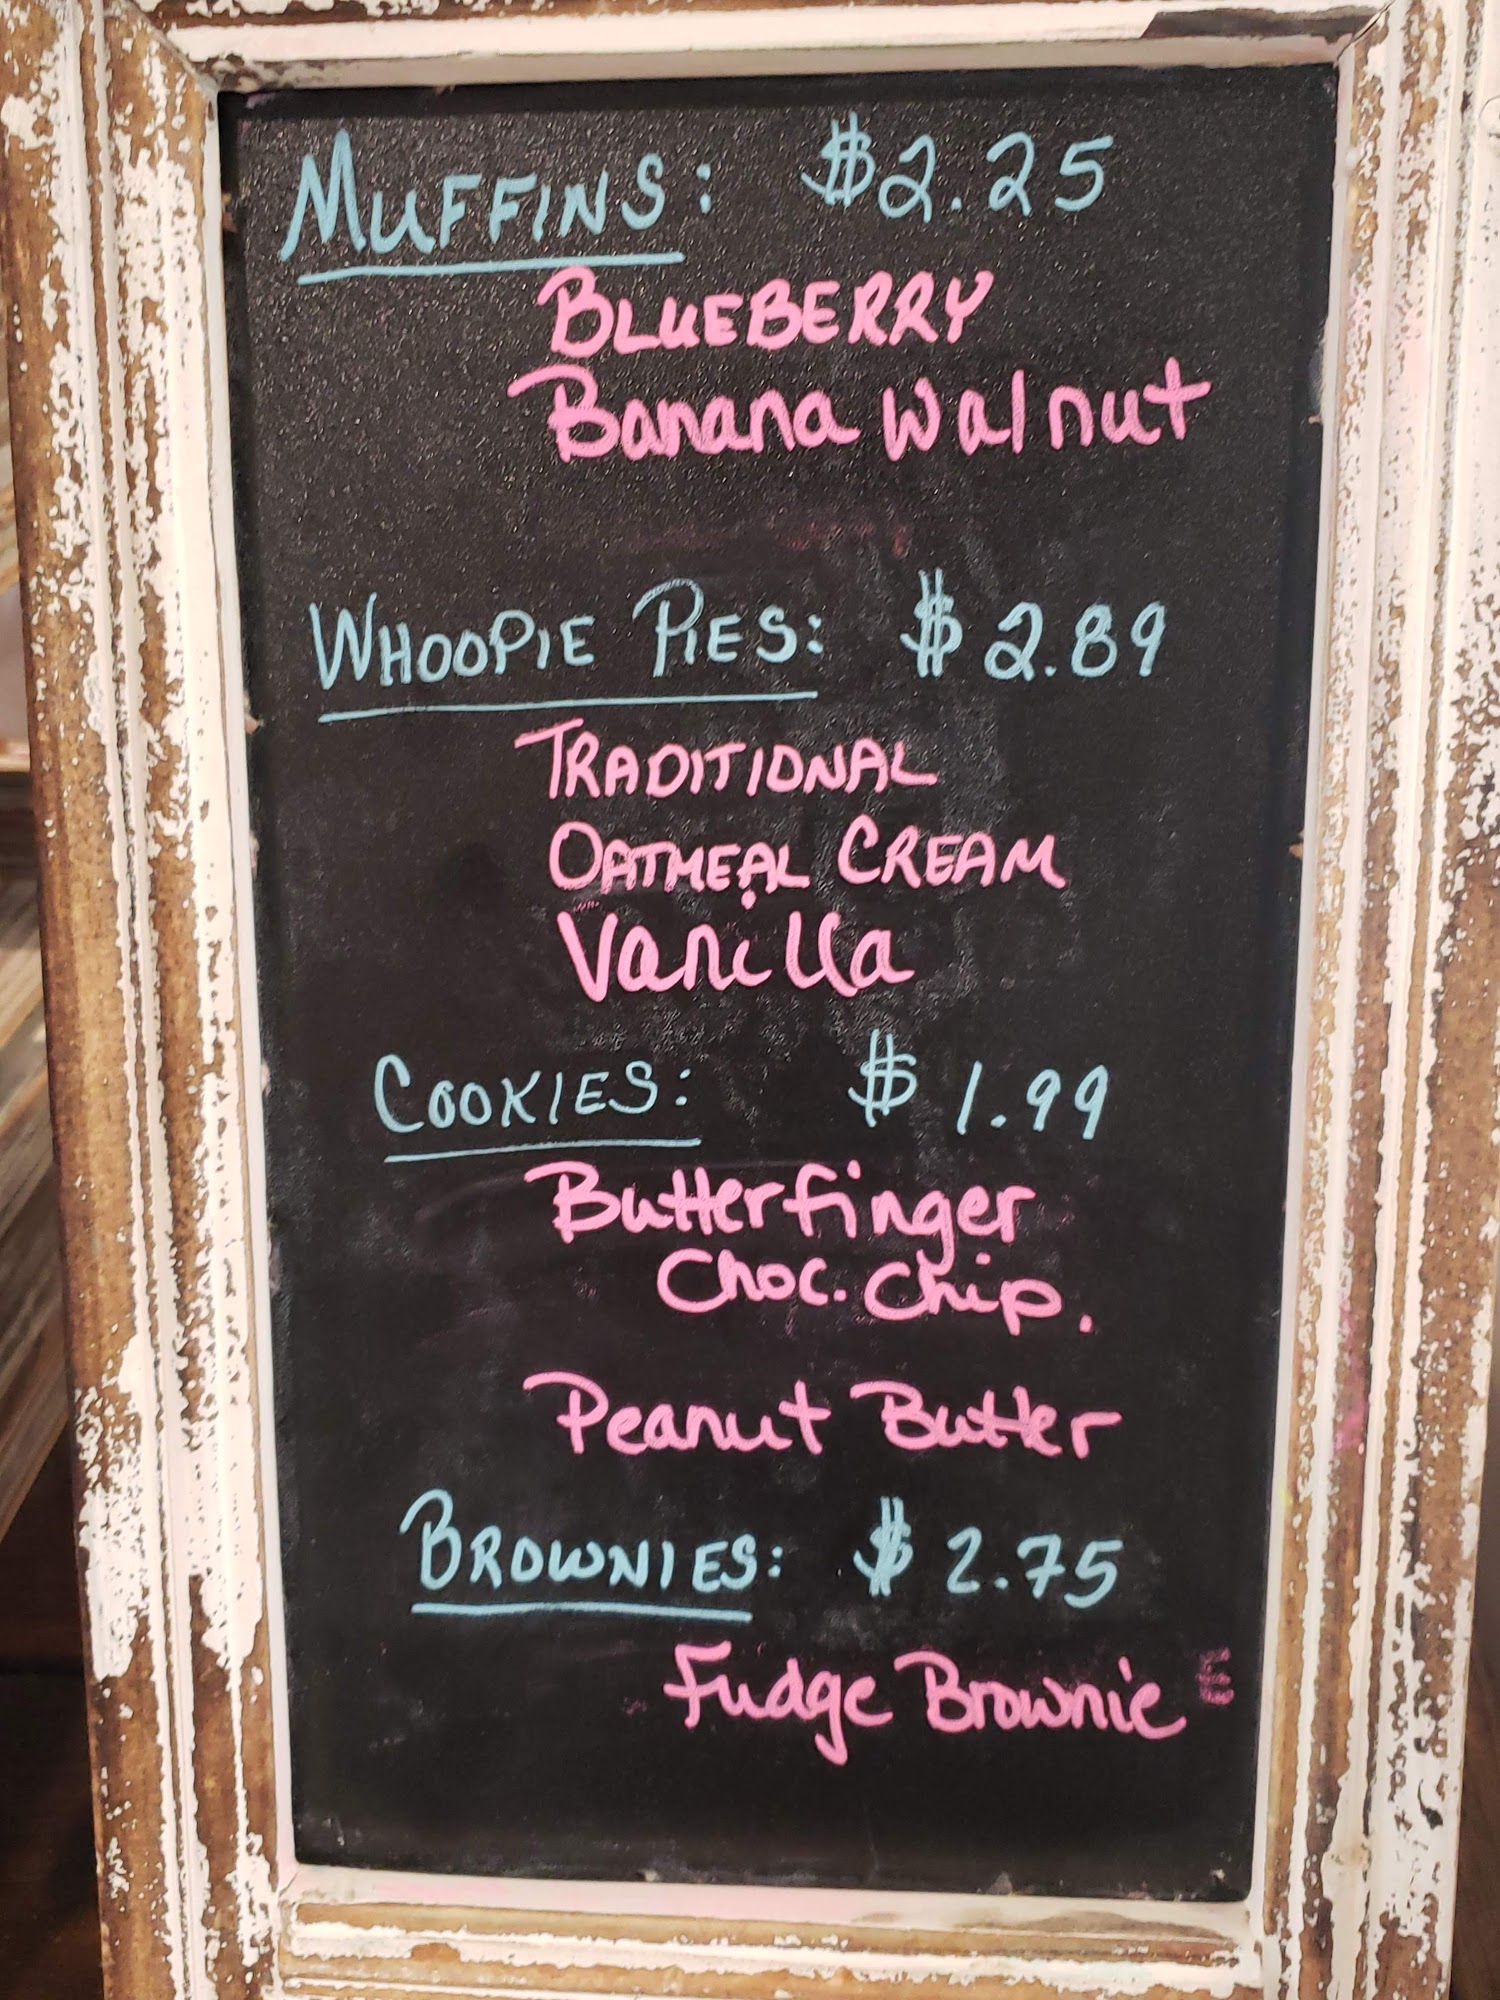 MUFFINS: $2.25
BLUEBERRY
Banana Walnut
WHOOPIE PIES: $2.89
TRADITIONAL
OATMEAL CREAM
Vanilla
COOKIES: $1.99
Butterfinger
Choc. Chip.
Peanut Butter
BROWNIES: $2.75
Fudge Brownie